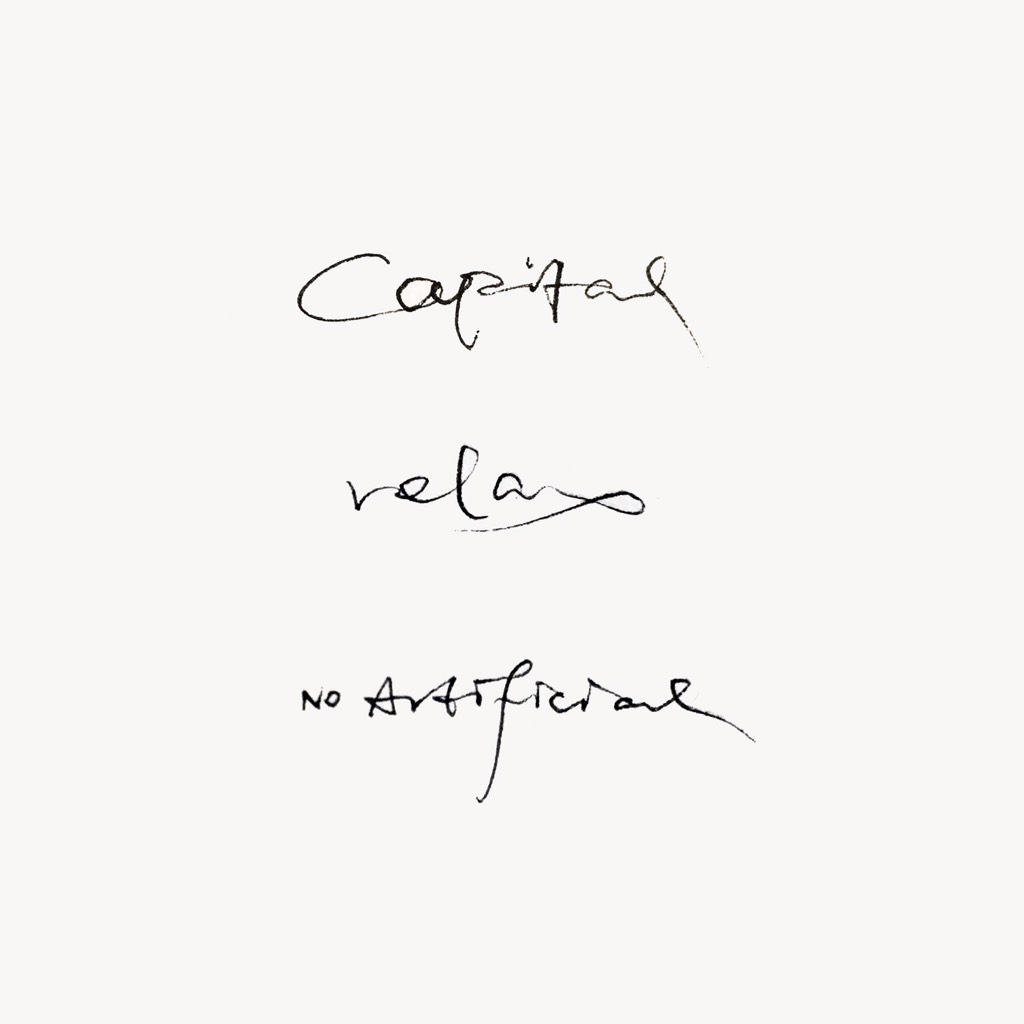 Capital
relax
NO Artificial